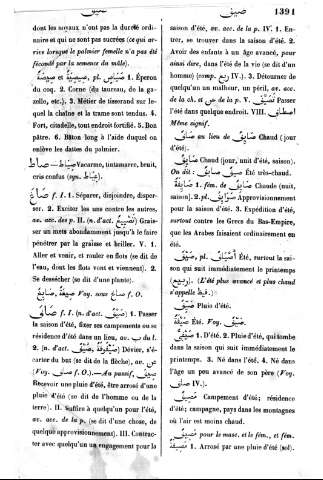 صيف
صيف
1391
dont les noyaux n'ont pas la dureté ordi-
naire et qui ne sont pas sucrées (ce qui ar-
rive lorsque le palmier femelle n'a pas été
fécondé par la semence du mâle).
pl. 1. Éperon
du coq. 2. Corne (du taureau, de la ga-
zelle, etc.). 3. Métier de tisserand sur le-
quel la chaîne et la trame sont tendus. 4.
Fort, citadelle, tout endroit fortifié. 5. Bon
pâtre. 6. Bâton long à l'aide duquel on
enlève les dattes du palmier.
صاط — صياط Vacarme, tintamarre, bruit,
cris confus (syn. صياط).
صاغ f. I. 1. Séparer, disjoindre, disper-
ser. 2. Exciter les uns contre les autres,
av. acc. des p. II. (n. d'act. ) Grais-
ser un mets abondamment jusqu'à le faire
pénétrer par la graisse et briller. V. 1.
Aller et venir, et rouler en flots (se dit de
l'eau, dont les flots vont et viennent). 2.
Se dessécher (se dit d'une plante).
Voy. sous صاغ f. O.
صاف f. I. (n. d'act. صيف) 1. Passer
la saison d'été, fixer ses campements ou se
résidence d'été dans un lieu, av. ب du l.
2. (n. d'act. ) Dévier, s'é-
carter du but (se dit de la flèche), av. عن
(Voy. صاف f. O.). — Au passif,
Recevoir une pluie d'été, être arrosé d'une
pluie d'été (se dit de l'homme ou de la
terre). II. Suffire à quelqu'un pour l'été,
av. acc. de la p. (se dit d'une chose, de
quelque approvisionnement). III. Contrac-
ter avec quelqu'un un engagement pour la
saison d'été, av. acc. de la p. IV. 1. En-
trer, se trouver dans la saison d'été. 2.
Avoir des enfants à un âge avancé, pour
ainsi dire, dans l'été de la vie (se dit d'un
homme) (comp. ربع IV.). 3. Détourner de
quelqu'un un malheur, un péril, av. acc.
de la ch. et عن de la p. V. تصيف Passer
l'été dans quelque endroit. VIII. اصطاف
Même signif.
صاف au lieu de صائف Chaud (jour
d'été).
صائف Chaud (jour, unit d'été, saison).
On dit : صيف صائف Été très-chaud.
صائفة 1. fém. de صائف Chaude (nuit,
saison). 2. pl. صوائف Approvisionnement
pour la saison d'été. 3. Expédition d'été,
surtout contre les Grecs du Bas-Empire,
que les Arabes faisaient ordinairement en
été.
صيف, pl. أصياف Été, surtout la sai-
son qui suit immédiatement le printemps
(ربيع). (L'été plus avancé et plus chaud
s'appelle قيظ.)
صيف Pluie d'été.
صيفة Été. Voy. صيف.
صيفي 1. D'été. 2. Pluie d'été, qui tombe
dans la saison qui suit immédiatement le
printemps. 3. Né dans l'été. 4. Né dans
l'âge un peu avancé de son père (Voy.
صاف IV.).
Campement d'été; résidence
d'été; campagne, pays dans les montagnes
où l'air est moins chaud.
pour le masc. et le fém., et fém.
1. Arrosé par une pluie d'été (sol).